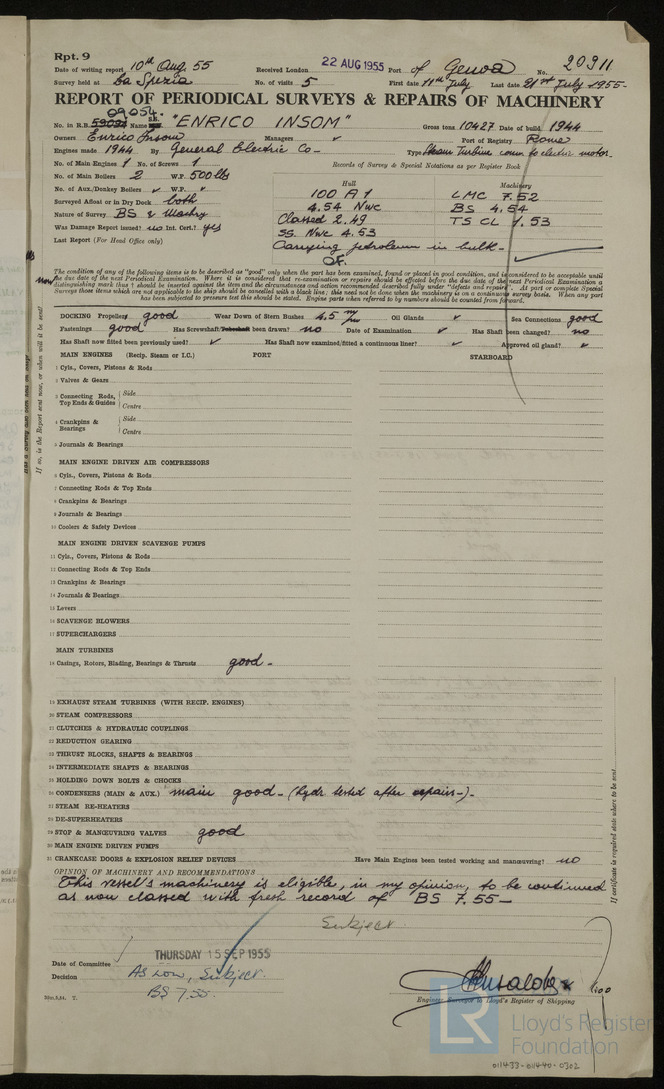 Rpt. 9
Date of writing report 10th Aug. 55 Received London 22 AUG 1955 Port of Genoa No. 20911
Survey held at La Spezia No. of visits 5 First date 11th July Last date 21st July 1955-
REPORT OF PERIODICAL SURVEYS & REPAIRS OF MACHINERY
09054.
No. in R.B. Name "ENRICO INSOM" Gross tons 10427 Date of build 1944
Owners Enrico Insom Managers Port of Registry Rome
Engines made 1944 By General Electric Co- Type Steam Turbine conn. to electric motor-
No. of Main Engines 1 No. of Screws 1 Records of Survey & Special Notations as per Register Book
No. of Main Boilers 2 W.P. 500 lbs
No. of Aux./Donkey Boilers W.P.
Surveyed Afloat or in Dry Dock both
Nature of Survey BS & Machry
Was Damage Report issued? no Int. Cert.? yes
Last Report (For Head Office only)
Hull
100 A 1
4.54 Nwc
Classed 2.49
SS. Nwc 4.53
Carrying petroleum in bulk-
OF.
Machinery
LMC 7.52
BS 4.54
TS CL 1.53
The condition of any of the following items is to be described as "good" only when the part has been examined, found or placed in good condition, and is considered to be acceptable until
the due date of the next Periodical Examination. Where it is considered that re-examination or repairs should be effected before the due date of the next Periodical Examination a
distinguishing mark thus † should be inserted against the item and the circumstances and action recommended described fully under "defects and repairs". At part or complete Special
Surveys those items which are not applicable to the ship should be cancelled with a black line; this need not be done when the machinery is on a continuous survey basis. When any part
has been subjected to pressure test this should be stated. Engine parts when referred to by numbers should be counted from forward.
DOCKING Propellers good Wear Down of Stern Bushes 4,5 m/m Oil Glands Sea Connections good
Fastenings good Has Screwshaft/Tubeshaft been drawn? no Date of Examination Has Shaft been changed? no
Has Shaft now fitted been previously used? Has Shaft now examined/fitted a continuous liner? Approved oil gland?
MAIN ENGINES (Recip. Steam or I.C.) PORT STARBOARD
1 Cyls., Covers, Pistons & Rods
2 Valves & Gears
3 Connecting Rods, Top Ends & Guides { Side
Centre
4 Crankpins & Bearings { Side
Centre
5 Journals & Bearings
MAIN ENGINE DRIVEN AIR COMPRESSORS
6 Cyls., Covers, Pistons & Rods
7 Connecting Rods & Top Ends
8 Crankpins & Bearings
9 Journals & Bearings
10 Coolers & Safety Devices
MAIN ENGINE DRIVEN SCAVENGE PUMPS
11 Cyls., Covers, Pistons & Rods
12 Connecting Rods & Top Ends
13 Crankpins & Bearings
14 Journals & Bearings
15 Levers
16 SCAVENGE BLOWERS
17 SUPERCHARGERS
MAIN TURBINES
18 Casings, Rotors, Blading, Bearings & Thrusts good-
19 EXHAUST STEAM TURBINES (WITH RECIP. ENGINES)
20 STEAM COMPRESSORS
21 CLUTCHES & HYDRAULIC COUPLINGS
22 REDUCTION GEARING
23 THRUST BLOCKS, SHAFTS & BEARINGS
24 INTERMEDIATE SHAFTS & BEARINGS
25 HOLDING DOWN BOLTS & CHOCKS
26 CONDENSERS (MAIN & AUX.) main good- (hydr. tested after repairs-)-
27 STEAM RE-HEATERS
28 DE-SUPERHEATERS
29 STOP & MANŒUVRING VALVES good
30 MAIN ENGINE DRIVEN PUMPS
31 CRANKCASE DOORS & EXPLOSION RELIEF DEVICES Have Main Engines been tested working and manœuvring? no
OPINION OF MACHINERY AND RECOMMENDATIONS
This vessel's machinery is eligible, in my opinion, to be continued
as now classed with fresh record of BS 7.55-
Subject
Date of Committee THURSDAY 15 SEP 1955
Decision As now, Subject.
BS 7.55.
Engineer Surveyor to Lloyd's Register of Shipping
If so, is the Report sent now, or when will it be sent?
If certificate is required state where to be sent
LR
Lloyd's Register
Foundation
011433-011440-0302